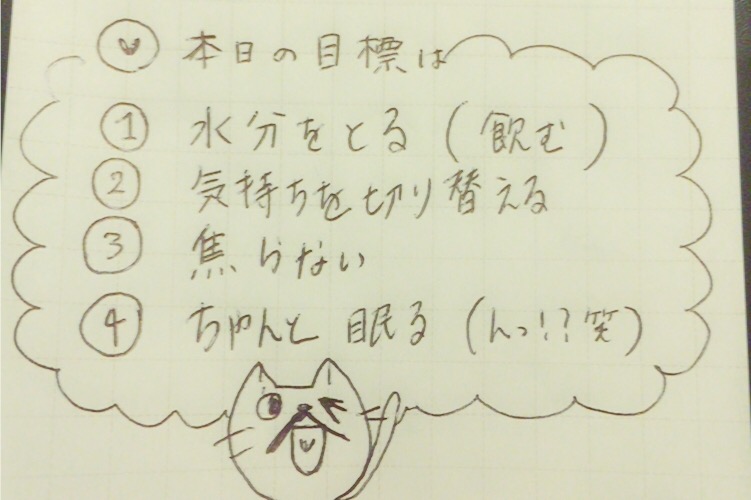 本日の目標は
① 水分をとる(飲む)
② 気持ちを切り替える
③ 焦らない
④ ちゃんと 眠る(んっ!?笑)